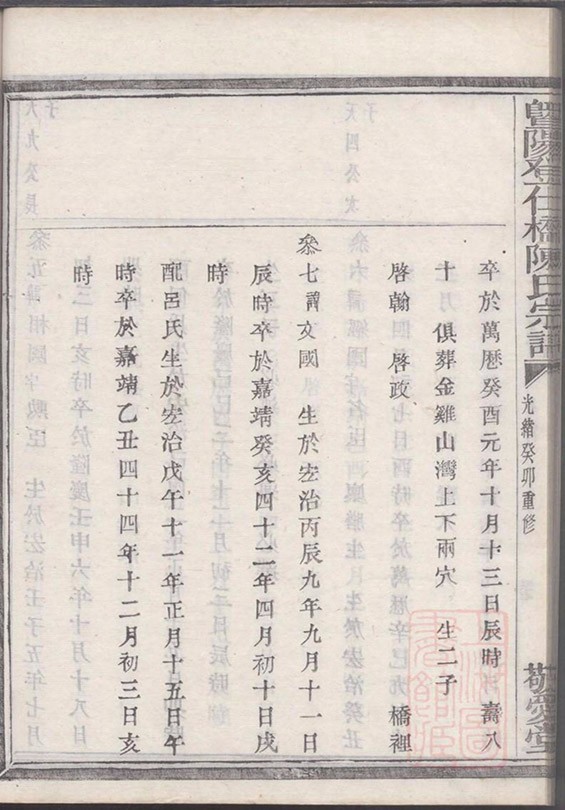 暨陽登仕橋陳氏宗譜
光緒癸卯重修
敬愛堂
卒於萬曆癸酉元年十月十三日辰時 壽八
十月 俱葬金雞山灣上下兩穴 生二子
啓翰 啓政 橋裡
叅七諱文國 生於宏治丙辰九年九月十一日
辰時卒於嘉靖癸亥四十二年四月初十日戌
時
配呂氏生於宏治戊午十一年正月十五日午
時卒於嘉靖乙丑四十四年十二月初三日亥
時